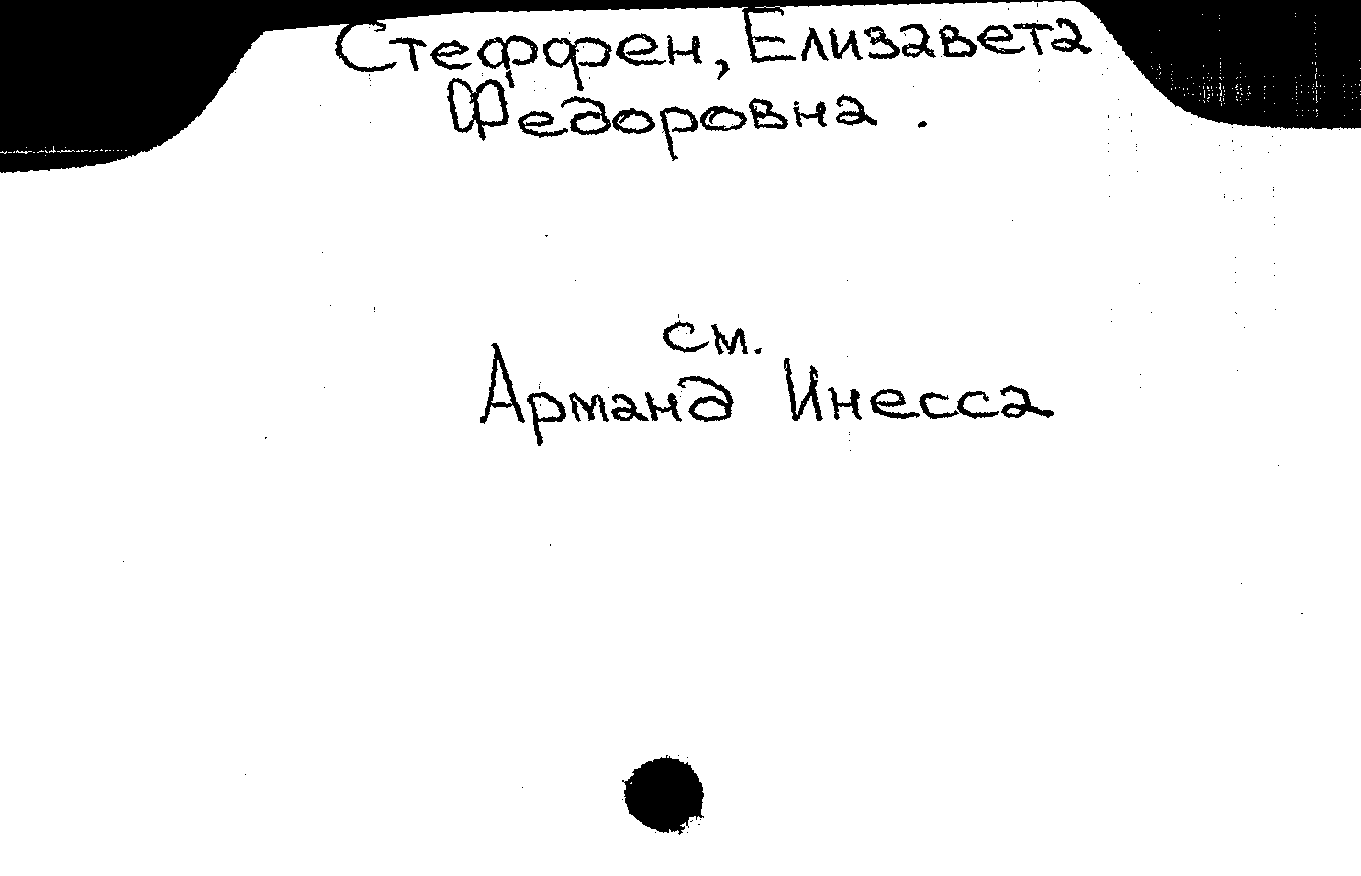 Стеффен, Елизавета
Федоровна .
см.
Арманд Инесса